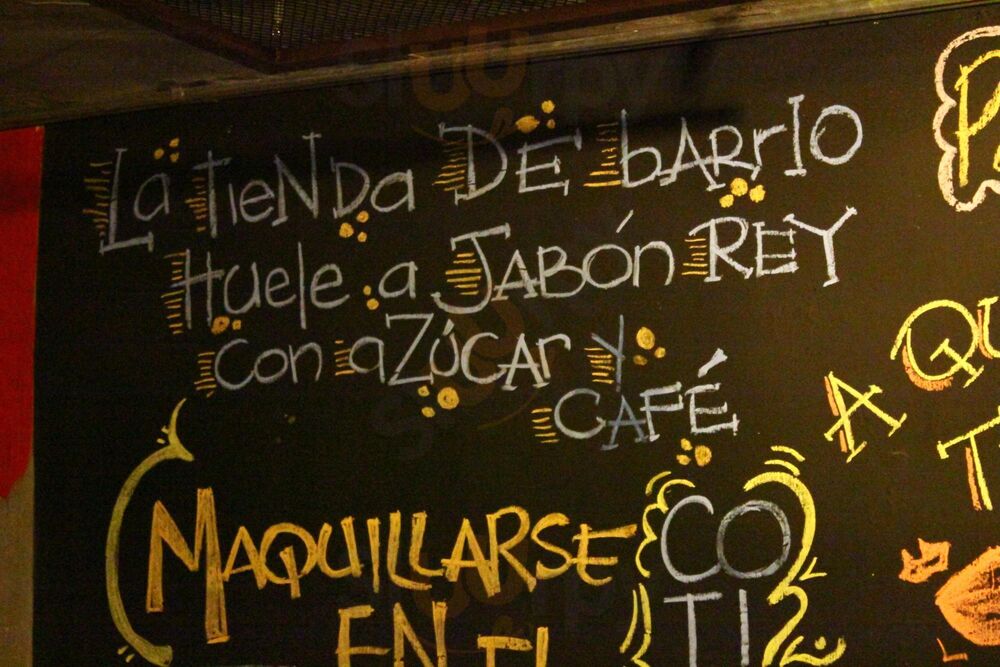 La tieNDa DE bARrIO
Huele a JABÓn REY
con aZÚCAr y
CAFÉ
MAQUILLARSE
EN EL
CO
TI
A QU